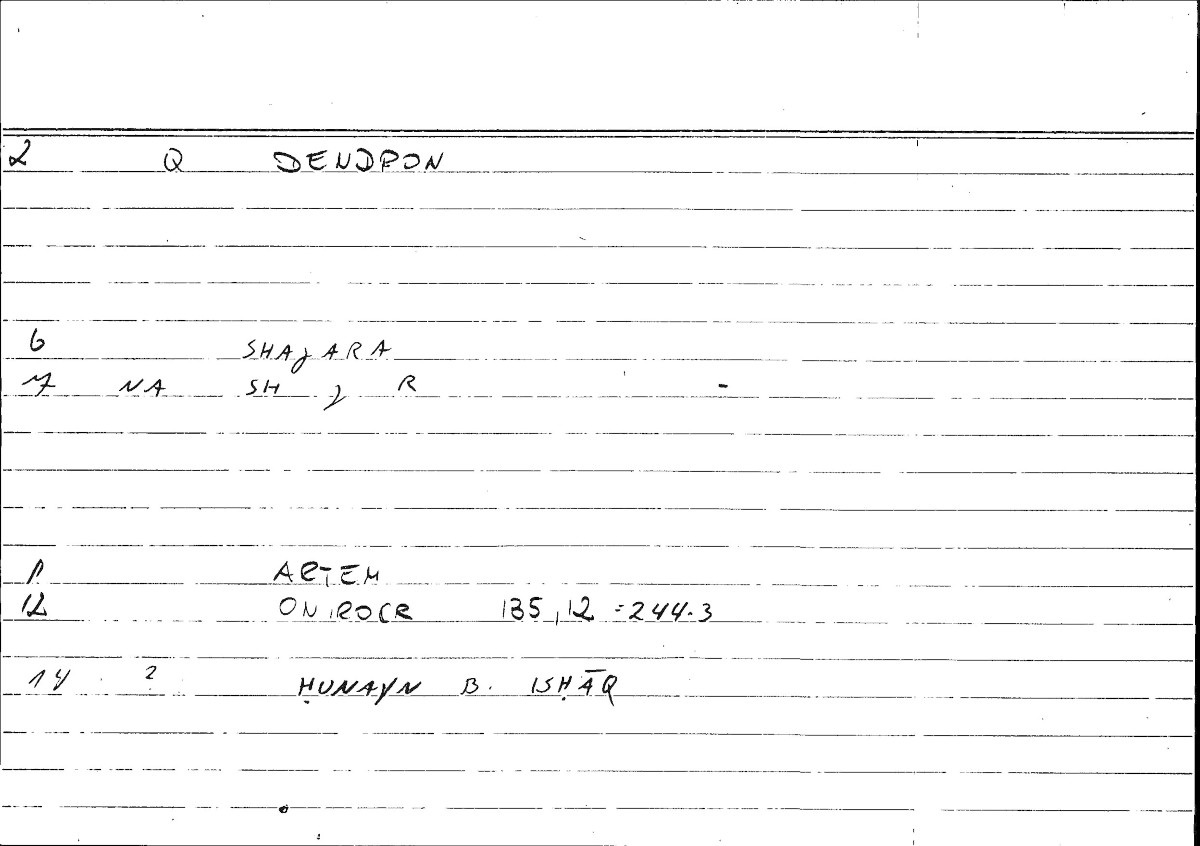 2 Q DENDPON
6 SHAJARA
7 NA SH J R -
11 ARTEM
12 ONIROCR 135,12 =244.3
14 2 ḤUNAYN B. ISḤĀQ